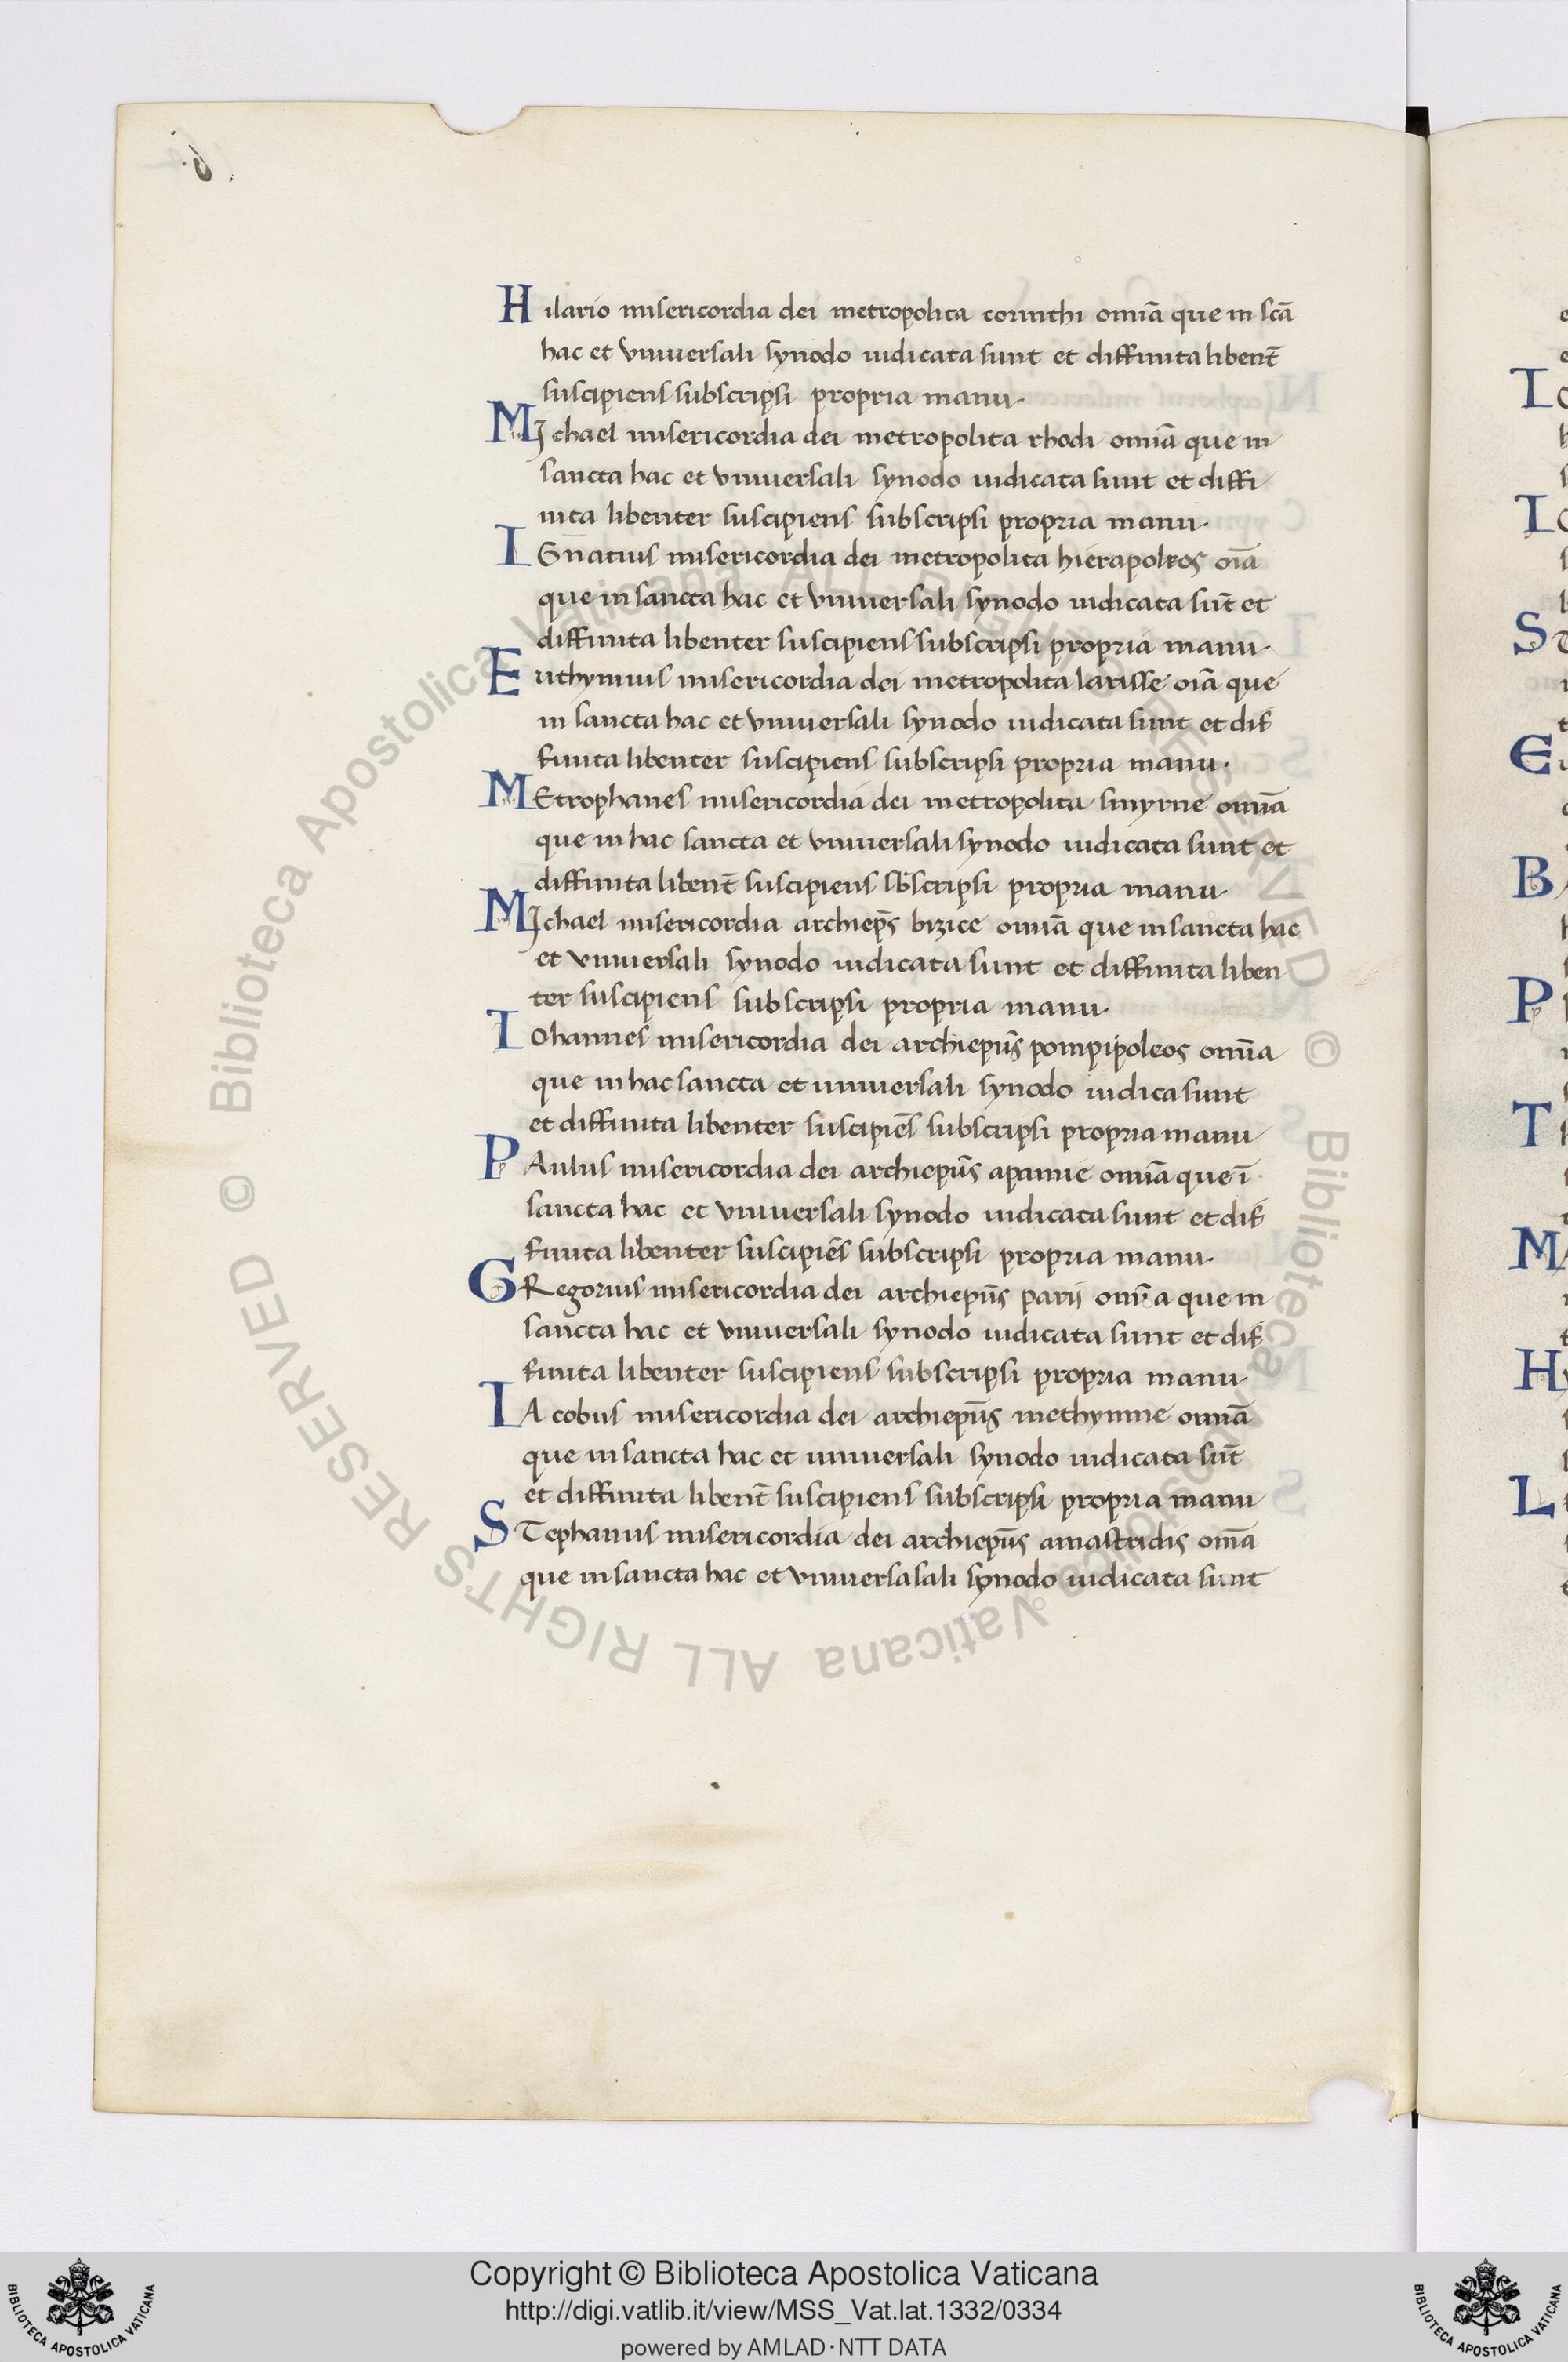 6.
Hilario misericordia dei metropolita corinthi omīa que in scā
hac et vniuersali synodo iudicata sunt et diffinita libent̄
suscipiens subscripsi propria manu.
MIchael misericordia dei metropolita rhodi omīa que in
sancta hac et vniuersali synodo iudicata sunt et diffi
nita libenter suscipiens subscripsi propria manu.
IGn̄atius misericordia dei metropolita hierapoleos oīa
que in sancta hac et vniuersali synodo iudicata sūt et
diffinita libenter suscipiens subscripsi propria manu.
Euthymius misericordia dei metropolita larisse oīa que
in sancta hac et vniuersali synodo iudicata sunt et dif
finita libenter suscipiens subscripsi propria manu.
MEtrophanes misericordia dei metropolita smyrne omīa
que in hac sancta et vniuersali synodo iudicata sunt et
diffinita libent̄ suscipiens sb̄scripsi propria manu.
MIchael misericordia archiep̄s bizice omīa que in sancta hac
et vniuersali synodo iudicata sunt et diffinita liben
ter suscipiens subscripsi propria manu.
Iohannes misericordia dei archiepūs pompipoleos omīa
que in hac sancta et uniuersali synodo iudica sunt
et diffinita libenter suscipiēs subscripsi propria manu
PAulus misericordia dei archiepūs apamie omīa que ī
sancta hac et vniuersali synodo iudicata sunt et dif
finita libenter suscipiēs subscripsi propria manu.
GRegorius misericordia dei archiepūs parij omīa que in
sancta hac et vniuersali synodo iudicata sunt et dif
finita libenter suscipiens subscripsi propria manu.
IAcobus misericordia dei archiepūs methymne omīa
que in sancta hac et uniuersali synodo iudicata sūt
et diffinita libent̄ suscipiens subscripsi propria manu
STephanus misericordia dei archiepūs amastridis om̄a
que in sancta hac et vniuersasali synodo iudicata sunt
I
I
S
E
B
P
T
M
H
L
© Biblioteca Apostolica Vaticana ALL RIGHTS RESERVED © Biblioteca Apostolica Vaticana ALL RIGHTS RESERVED
Copyright © Biblioteca Apostolica Vaticana
http://digi.vatlib.it/view/MSS_Vat.lat.1332/0334
powered by AMLAD·NTT DATA
BIBLIOTECA APOSTOLICA VATICANA
BIBLIOTECA APOSTOLICA VATICANA